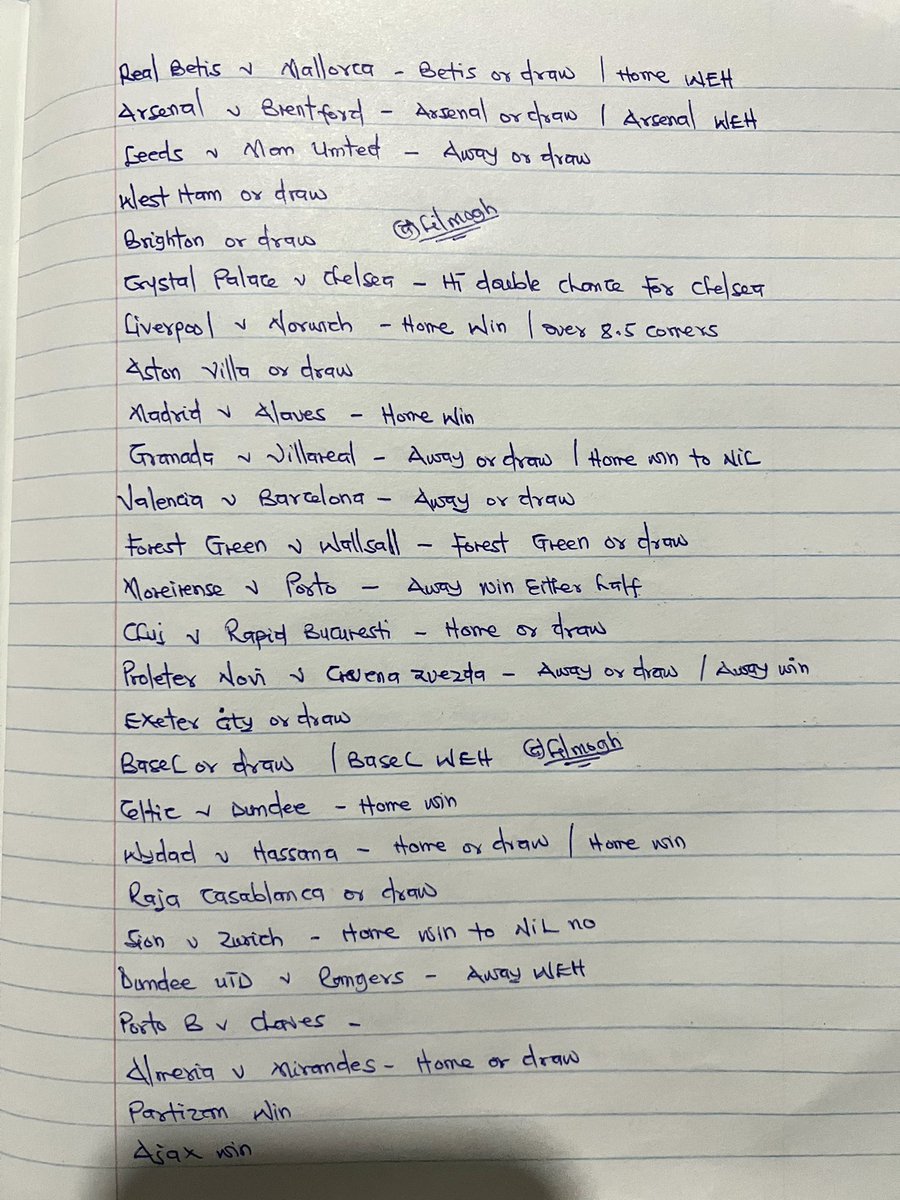 Real Betis v Mallorca - Betis or draw | Home WEH
Arsenal v Brentford - Arsenal or draw | Arsenal WEH
Leeds v Man Umted - Away or draw
West Ham or draw
@Gilmogh
Brighton or draw
Crystal Palace v Chelsea - Hi double chance for Chelsea
Liverpool v Norwich - Home Win | over 8.5 corners
Aston Villa or draw
Madrid v Alaves - Home Win
Granada v Villareal - Away or draw | Home win to NiL
Valencia v Barcelona - Away or draw
Forest Green v Wallsall - Forest Green or draw
Moreirense v Porto - Away win Either half
Cluj v Rapid Bucuresti - Home or draw
Proleter Novi v Crvena zvezda - Away or draw | Away win
Exeter city or draw
Basel or draw | Basel WEH @Gilmogh
Celtic v Dundee - Home win
Wydad v Hassana - Home or draw | Home win
Raja Casablanca or draw
Sion v Zurich - Home win to NiL no
Dundee UTD v Rangers - Away WEH
Porto B v Chaves -
Almeria v Mirandes - Home or draw
Partizan Win
Ajax win